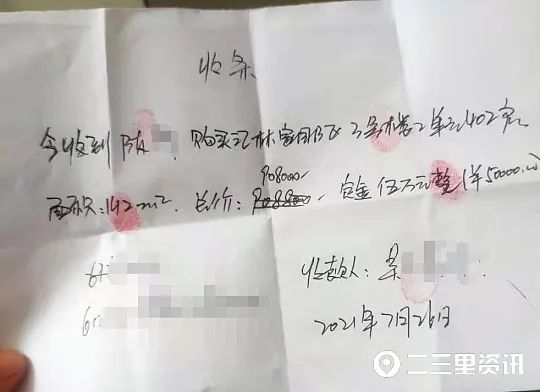 收条
今收到陈 购买汇林家园B区3号楼2单元402室
908000
面积:142m² 总价: 定金伍万元整(¥50000.00)
收款人:
2021年7月26日
二三里资讯